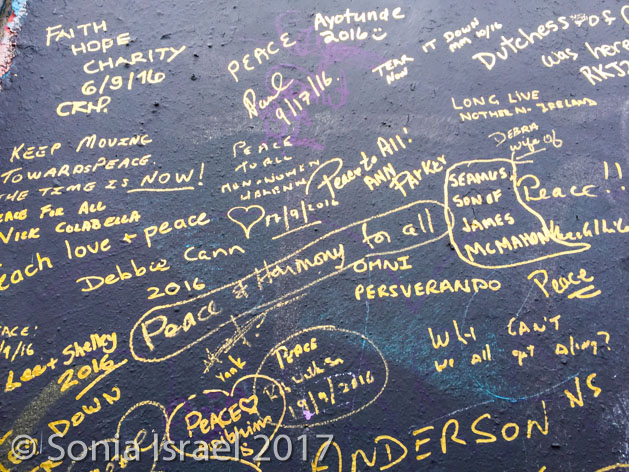 FAITH
HOPE
CHARITY
6/9/16
CRHP.
PEACE
Paul
9/17/16.
Ayotunde
2016
TEAR IT DOWN
Now
10/16
Dutchess of
was here
LONG LIVE
NOTHERN IRELAND
DEBRA
wife of
SEAMUS
SON OF
JAMES
MCMAHON
Peace!!
KEEP MOVING
TOWARDS PEACE.
THE TIME IS NOW!
FOR ALL
VICK COLABELLA
PEACE
TO ALL
17/9/2016
Peace to All!
ANN
PARKER
each love + peace
Debbie Cann
2016
Peace & Harmony for all
OMNI
PERSVERANDO
Peace
Why CAN'T
we all get along?
9/16
Lee + Shelley
2016
DOWN
Yank
PEACE
PEACE
19/9/2016
ANDERSON NS
© Sonia Israel 2017